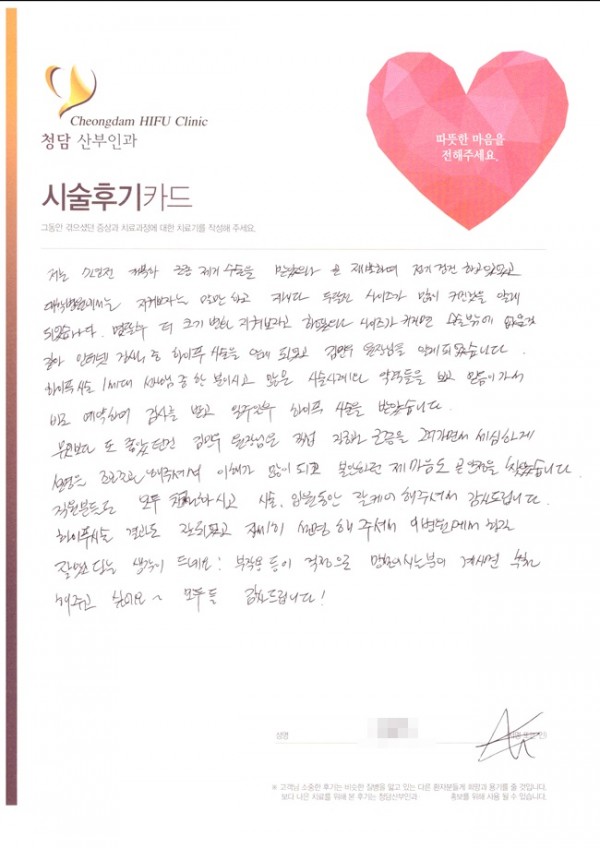 Cheongdam HIFU Clinic
청담 산부인과
따뜻한 마음을
전해주세요.
시술후기카드
그동안 겪으셨던 증상과 치료과정에 대한 치료기를 작성해 주세요.
저는 전 개복 근종 제거 수술을 받았으나 또 재발하여 정기검진 하고 있었고
대학병원에서는 지켜보자는 말만 하고 사이즈가 많이 커진것을 알게
되었습니다. 더 크기 변화 지켜보자고 사이즈가 커지면 수술밖에 없을것
같아 인터넷 검색 중 하이푸 시술을 알게 되었고 김민우 원장님을 알게되었습니다.
하이푸시술 1세대 선생님 중 한 분이시고 많은 시술사례나 약력들을 보고 믿음이가서
바로 예약하여 검사를 받고 일주일후 하이푸 시술을 받았습니다.
무엇보다 또 좋았던건 김민우 원장님은 직접 근종을 그려가면서 세심하게
설명 해주셔서 이해가 많이 되고 불안하던 제 마음도 곧 안정을 찾았습니다
직원분들도 모두 친절하시고 시술, 입원동안 잘케어 해주셔서 감사드립니다.
하이푸시술 결과도 잘 되었고 자세히 설명 해 주셔서 이병원에서 하길
잘했 다는 생각이 드네요! 부작용 등이 걱정으로 망설이시는분이 계시면 추천
해주고 싶어요~ 모두들 감사드립니다!
성명
※ 고객님 소중한 후기는 비슷한 질병을 앓고 있는 다른 환자분들께 희망과 용기를 줄 것입니다.
보다 나은 치료를 위해 본 후기는 청담산부인과 홍보를 위해 사용 될 수 있습니다.